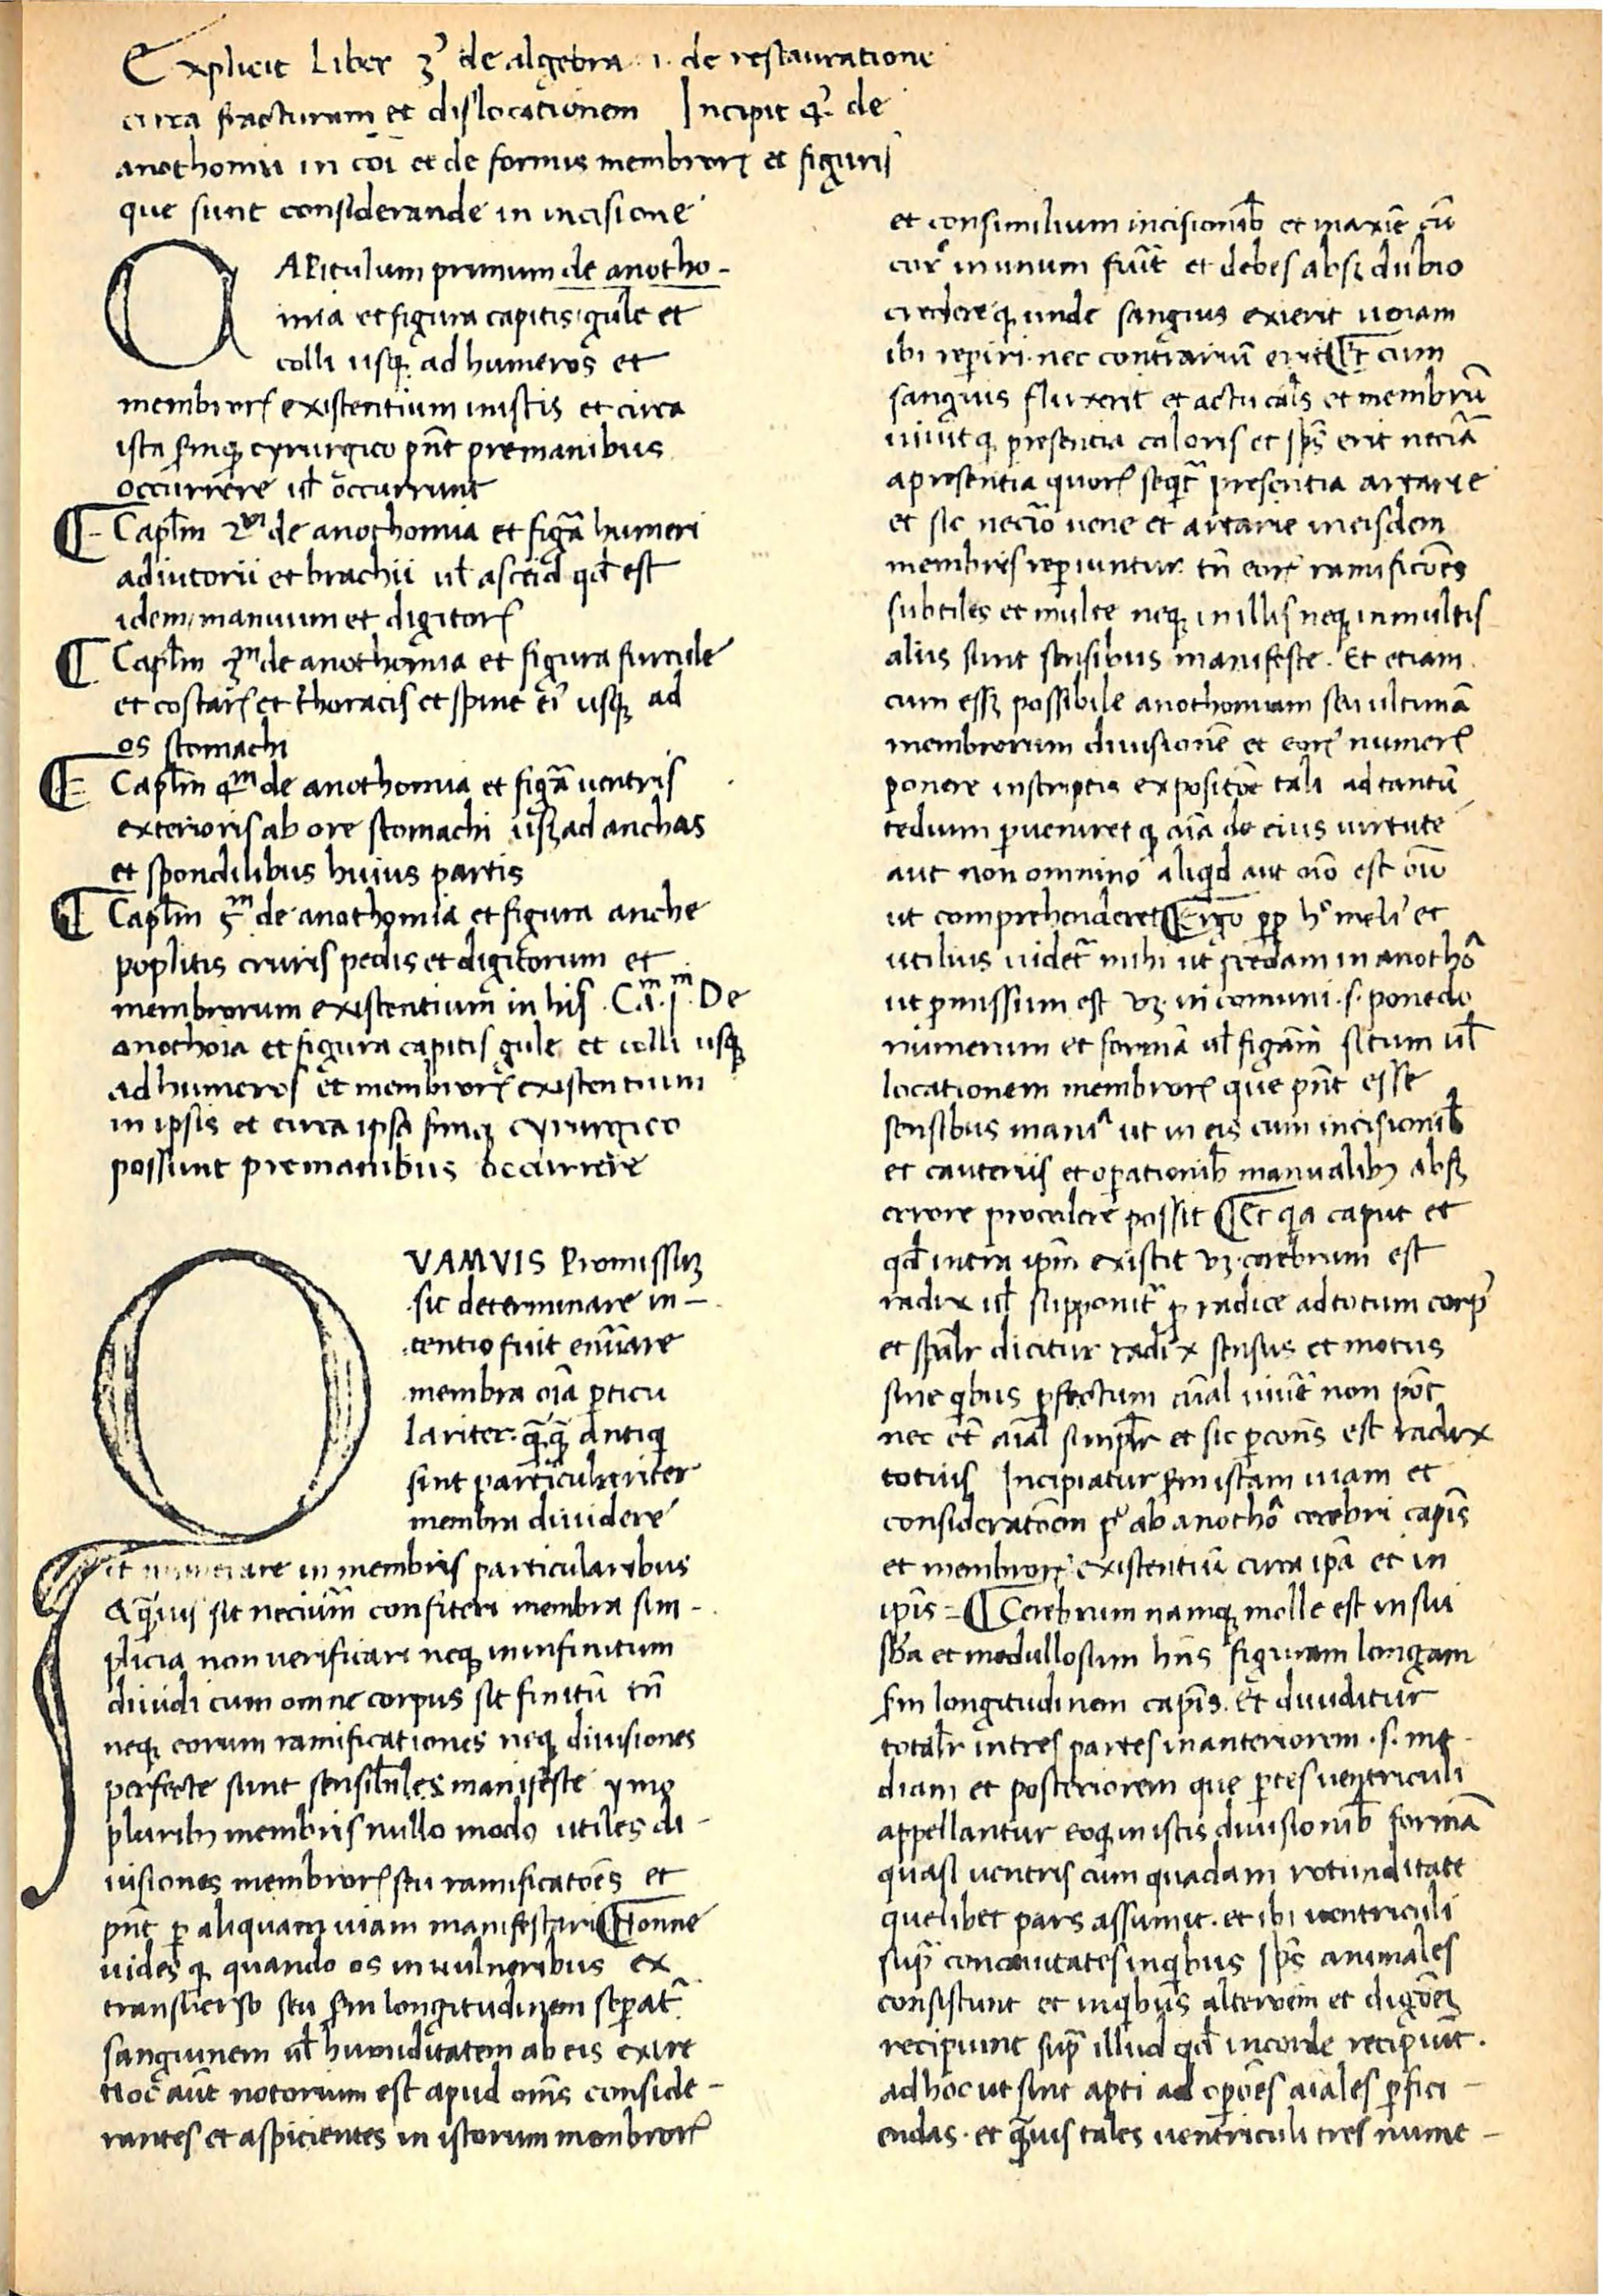 Explicit Liber 3ꝰ de algebra .i. de restauratione
circa fracturam et dislocationem Incipit q̄ꝰ de
anothomia in coī et de formis membroꝝ et figuris
que sunt considerande in incisione
CAPitulum primum de anotho-
mia et figura capitis gule et
colli usqꝫ ad humeros et
membroꝝ existentium in istis et circa
ista sīnqꝫ cyrurgico pn̄t pre manibus
occurrere ul̄ occurrunt
¶ Capl̄m 2m de anothomia et figa̅ humeri
adiutorii et brachii ul̄ asceid qd̄ est
idem/manuum et digitoꝝ
¶ Capl̄m 3m de anothomia et figura furcule
et costaꝝ et thoracis et spine eiꝰ usqꝫ ad
os stomachi
¶ Capl̄m 4m de anothomia et figa̅ uentris
exterioris ab ore stomachi usqꝫ ad anchas
et spondilibus huius partis
¶ Capl̄m 5m de anothomia et figura anche
poplitis cruris pedis et digitorum et
membrorum existentium in his . Cam. jm. De
anothoīa et figura capitis gule et colli usqꝫ
ad humeros et membroꝝ existentium
in ipsis et circa ipsa sīnqꝫ cyrurgico
possunt pre manibus occurrere
QVAMVIS Promissuꝫ
sic determinare in-
tentio fuit enūare
membra oīa ꝑticu
lariter. q̄qꝫ antiqi
sint particulariter
membra diuidere
et numerare in membris particularibus
& q̄uis sit neciūm confiteri membra sim-
plicia non uerificari neqꝫ in infinitum
diuidi cum omne corpus sit finitū tn̄
neqꝫ eorum ramificationes neqꝫ diuisiones
perfecte sunt sensibiles manifeste ymo
pluribꝫ membris nullo modo utiles di-
uisiones membroꝝ seu ramificatōes et
pn̄t ꝑ aliquam uiam manifestari ¶ Nonne
uides qꝫ quando os in uulneribus ex
transuerso seu sm̄ longitudinem seꝑat᷑
sanguinem ul̄ humiditatem ab eis exire
Hoc aūt notorium est apud om̄s conside-
rantes et aspicientes in istorum membroꝝ
et consimilium incisionibꝫ et maxīe cū
coꝝ in unum fuīt et debes absqꝫ dubio
credere qꝫ unde sanguis exierit uenam
ibi reperiri. nec contrariū erit ¶ Et cum
sanguis fluxerit et actu cal̄s et membrū
uiuit qꝫ presentia caloris et sp̄s erit neciā
a presentia quoꝝ seqt᷑ presentia artarie
et sic neciō uene et artarie in eisdem
membris reꝑiuntur. tn̄ eoꝝ ramificōes
subtiles et multe neqꝫ in illis neqꝫ in multis
aliis sunt sensibus manifeste. Et etiam
cum esset possibile anothomiam seu ultimā
membrorum diuisionē et eoꝝ numeꝝ
ponere in scriptis expositōe tali ad tantū
tedium ꝑueniret qꝫ aīa de eius uirtute
aut non omnino aliqid aut nō est oīo
ut comprehenderet ¶ Ergo ꝓp h° meliꝰ et
utilius uidet᷑ mihi ut ꝓcedam in anothō
ut ꝓmissium est uꝫ. in comuni .s. ponēdo
numerum et formā ul̄ figam̄ situm ul̄
locationem membroꝝ que pn̄t esse
sensibus mania ut in eis cum incisionibꝫ
et cauteriis et oꝑationibꝫ manualibꝫ absqꝫ
errore procedere possit ¶ Et qa caput et
qd̄ intra ipm̄ existit uꝫ. cerebrum est
radix ul̄ supponit᷑ ꝓ radice ad totum corpꝰ
et spa̅lr dicitur radix sensus et motus
sine qibus ꝑfectum aīal uiuē non pōt
nec et̄ aīal simpl̄r et sic ꝑ con̄s est radix
totius Incipiatur sm̄ istam uiam et
consideratōem pꝰ ab anothō cerebri capīs
et membroꝝ existentiū circa ipā et in
ipīs = ¶ Cerebrum namqꝫ molle est in sui
sba̅ et medullosum hn̄s figuram longam
sm̄ longitudinem capīs. Et diuiditur
total̄r in tres partes in anteriorem .s. me-
diam et posteriorem que ꝑtes uentriculi
appellantur eo qꝫ in istis diuisionibꝫ formā
quasi uentris cum quadam rotunditate
quelibet pars assumit. et ibi uentriculi
sup̄ concauitates in qibus sp̄s animales
consistunt et in qibus alteroēm et digōeꝫ
recipiunt sup̄ illud qd̄ in corde recipiūt.
ad hoc ut sint apti ad oꝑōes aīales ꝑfici-
endas. et q̄uis tales uentriculi tres nume-